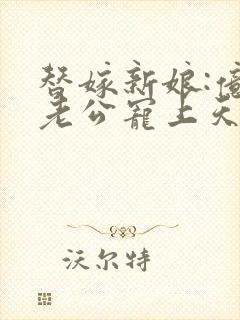 替嫁新娘:
老公宠上天
沃尔特